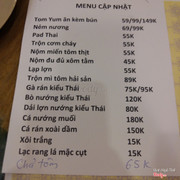 MENU CẬP NHẬT
Tom Yum ăn kèm bún 59/99/149K
Nêm nướng 69/99K
Pad Thai 55K
Trộn cơm cháy 55K
Nộm miến tôm thịt 55K
Nộm đu đủ xôm tằm 45K
Lạp lợn 55K
Trộn mì tôm hải sản 89K
Gà rán kiểu Thái 75K/95K
Bò nướng kiểu Thái 120K
Dải lợn nướng kiểu Thái 80K
Cá nướng muối 180K
Cá rán xoài dầm 150K
Xôi trắng 15K
Lạc rang lá mặc cụt 15K
65K